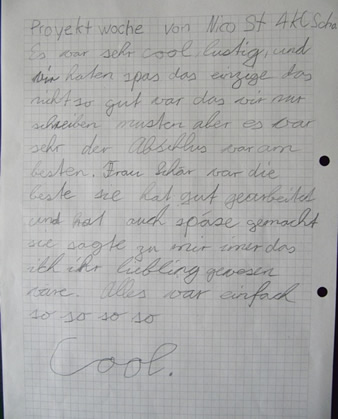 Proyekt woche von Nico St 4KCScha
Es war sehr cool, lustig, und
wir haten spas das einzige das
nicht so gut war das wir nur
schreiben musten aber es war
sehr der Abschlus war am
besten. Frau Schär war die
beste sie hat gut gearbeitet
und hat auch späse gemacht
sie sagte zu mir imer das
ich ihr liebling gewesen
ware. Alles war einfach
so so so so
Cool.